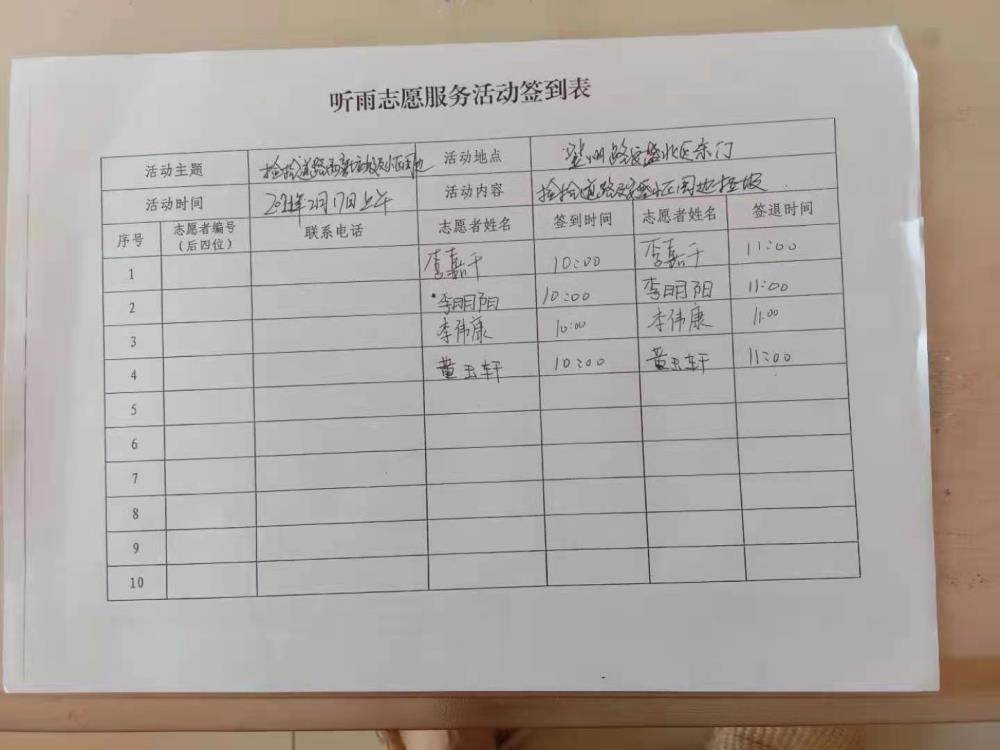 听雨志愿服务活动签到表
活动主题 捡拾道路两 活动地点 路安盛北区东门
活动时间 2021年2月17日上午 活动内容 捡拾道路及安盛小区周边垃圾
序号 志愿者编号（后四位） 联系电话 志愿者姓名 签到时间 志愿者姓名 签退时间
1 李嘉千 10:00 李嘉千 11:00
2 李明阳 10:00 李明阳 11:00
3 李伟康 10:00 李伟康 11:00
4 董玉轩 10:00 董玉轩 11:00
5
6
7
8
9
10